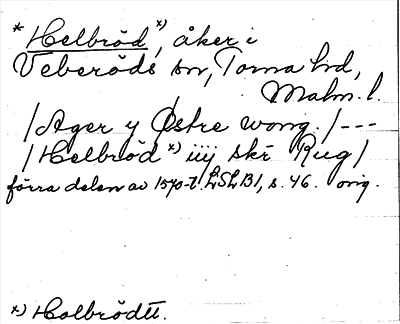 * Helbröd x), åker i
Veberöds sn, Torna hd,
Malm. l.
/Ager y Østre wong./ ---
/Helbröd x) iiij skr Rug/
förra delen av 1570-t. LSLB1, s. 46. orig.
x) Holbrödtt.